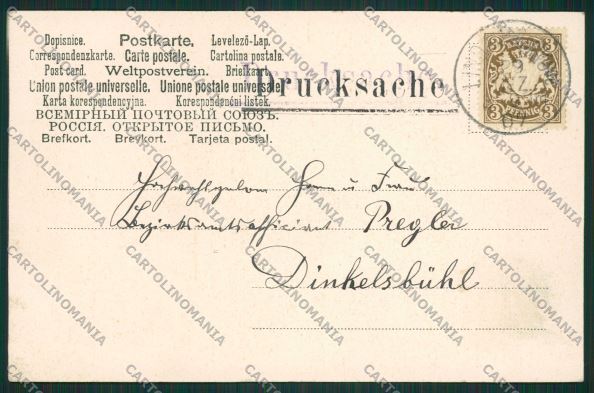 Dopisnice. Postkarte. Levelező-Lap.
Correspondenzkarte. Carte postale. Cartolina postale.
Post card. Weltpostverein. Briefkaart.
Union postale universelle. Unione postale universale.
Karta korespondencyjna. Korespondenční lístek.
ВСЕМІРНЫЙ ПОЧТОВЫЙ СОЮЗЪ.
РОССІЯ. ОТКРЫТОЕ ПИСЬМО.
Brefkort. Brevkort. Tarjeta postal.
Drucksache
BAYERN
3 3
PFENNIG
Hochwohlgeborn Herrn u. Frau
Bezirksamtsoffiziant Pregler
Dinkelsbühl
CARTOLINOMANIA